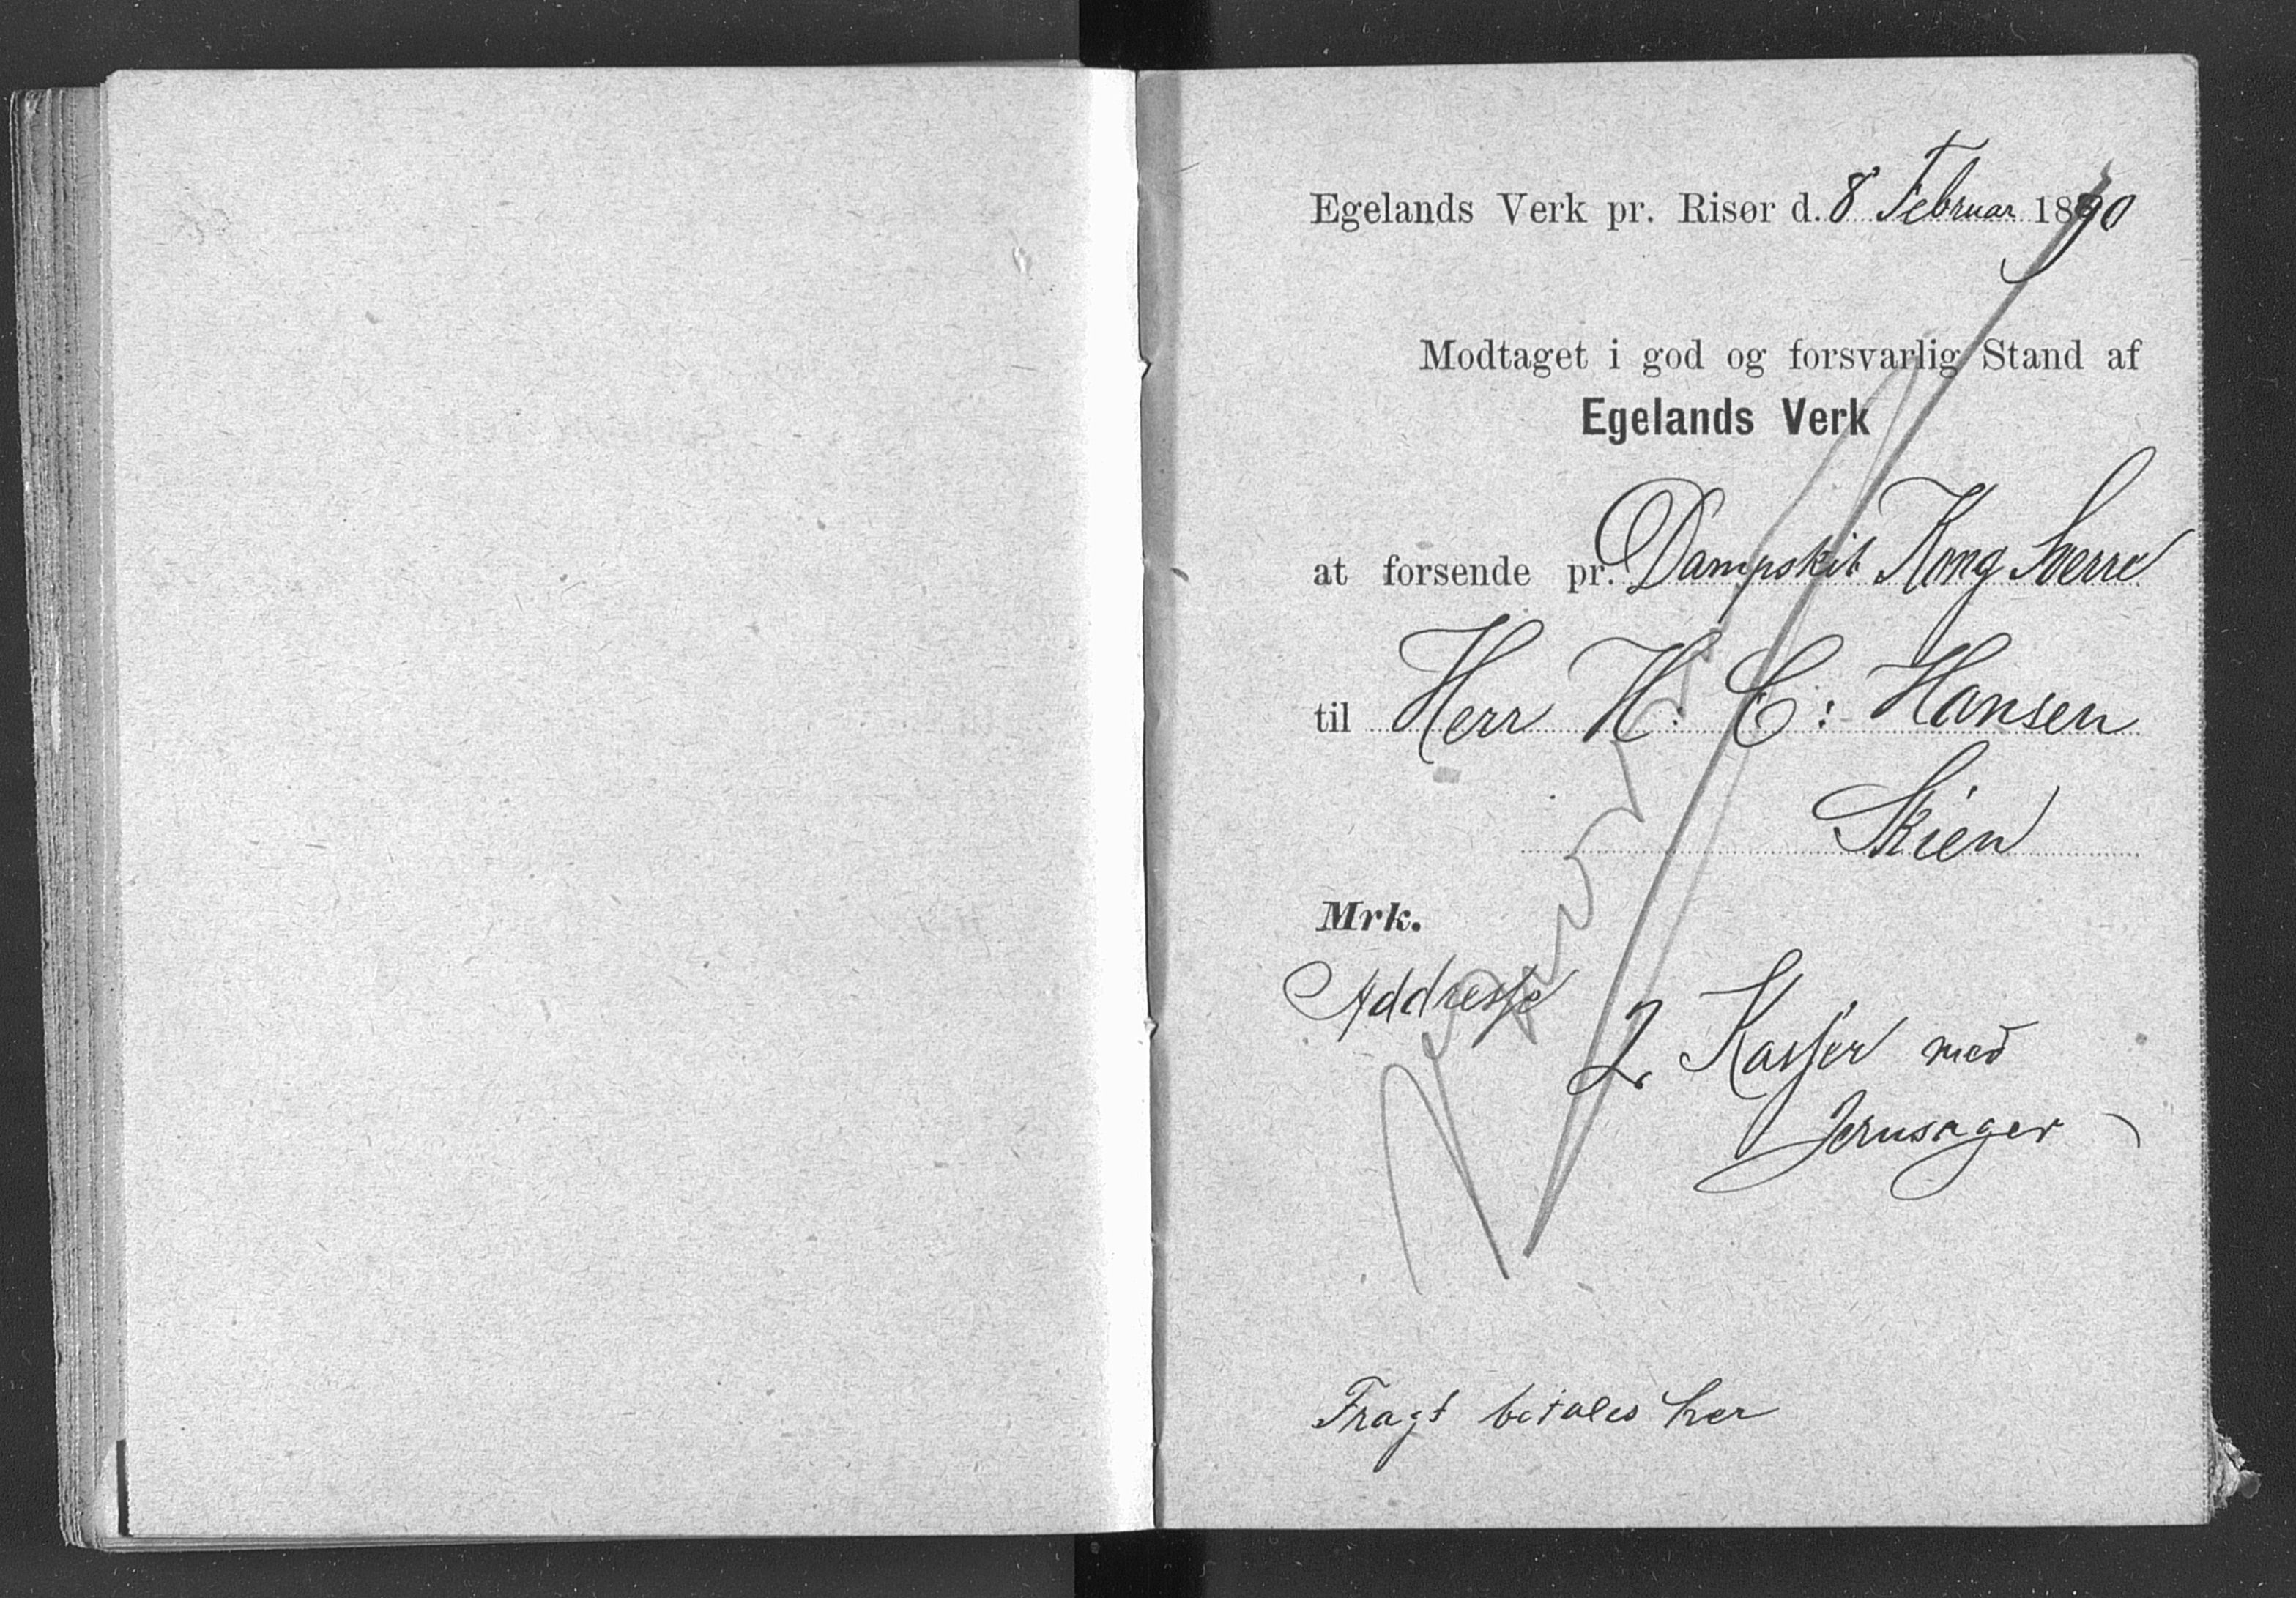 Egelands Verk pr. Risør d. 8 Februar 1890
Modtaget i god og forsvarlig Stand af
Egelands Verk
at forsende pr. Dampskib Kong Sverre
til Herr H: C: Hansen
Skien
Mrk.
Addresse
2 Kasser med
Jernsager
Fragt betales her